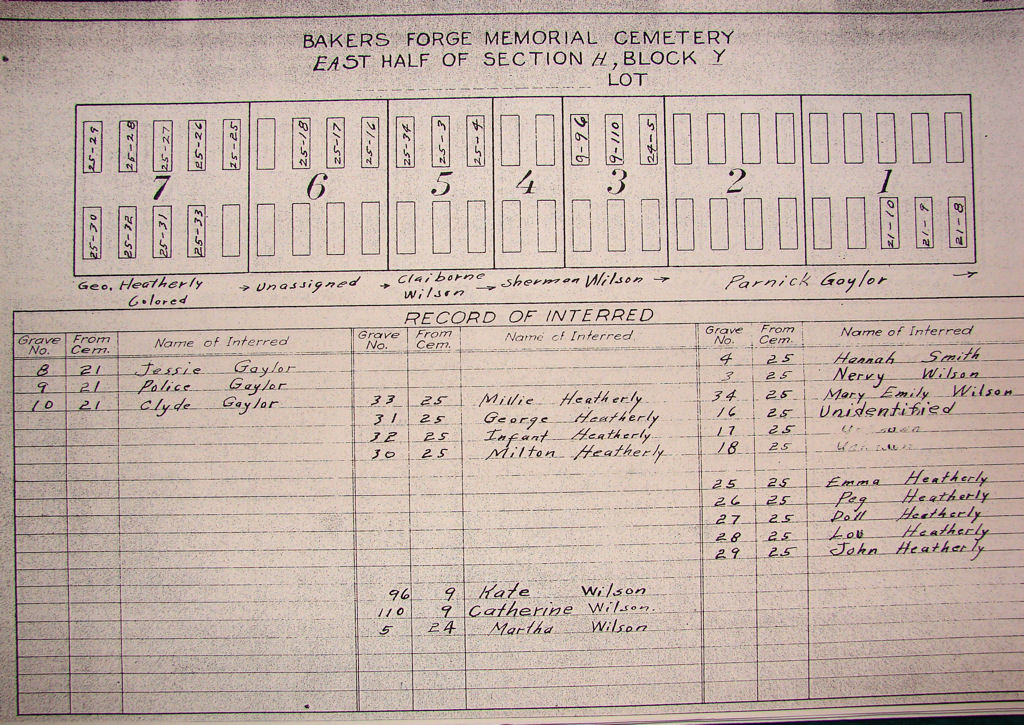 BAKERS FORGE MEMORIAL CEMETERY
EAST HALF OF SECTION H, BLOCK Y
LOT
25-29 25-28 25-27 25-26 25-25 25-18 25-17 25-16 25-34 25-3 25-4 9-96 9-110 24-5
7 6 5 4 3 2 1
25-30 25-32 25-31 25-33 21-10 21-9 21-8
Geo. Heatherly Colored → Unassigned → Claiborne Wilson → Sherman Wilson → Parnick Gaylor →
RECORD OF INTERRED
Grave No. From Cem. Name of Interred Grave No. From Cem. Name of Interred Grave No. From Cem. Name of Interred
8 21 Jessie Gaylor
9 21 Police Gaylor
10 21 Clyde Gaylor
33 25 Millie Heatherly
31 25 George Heatherly
32 25 Infant Heatherly
30 25 Milton Heatherly
96 9 Kate Wilson
110 9 Catherine Wilson.
5 24 Martha Wilson
4 25 Hannah Smith
3 25 Nervy Wilson
34 25 Mary Emily Wilson
16 25 Unidentified
17 25
18 25
25 25 Emma Heatherly
26 25 Peg Heatherly
27 25 Doll Heatherly
28 25 Lou Heatherly
29 25 John Heatherly